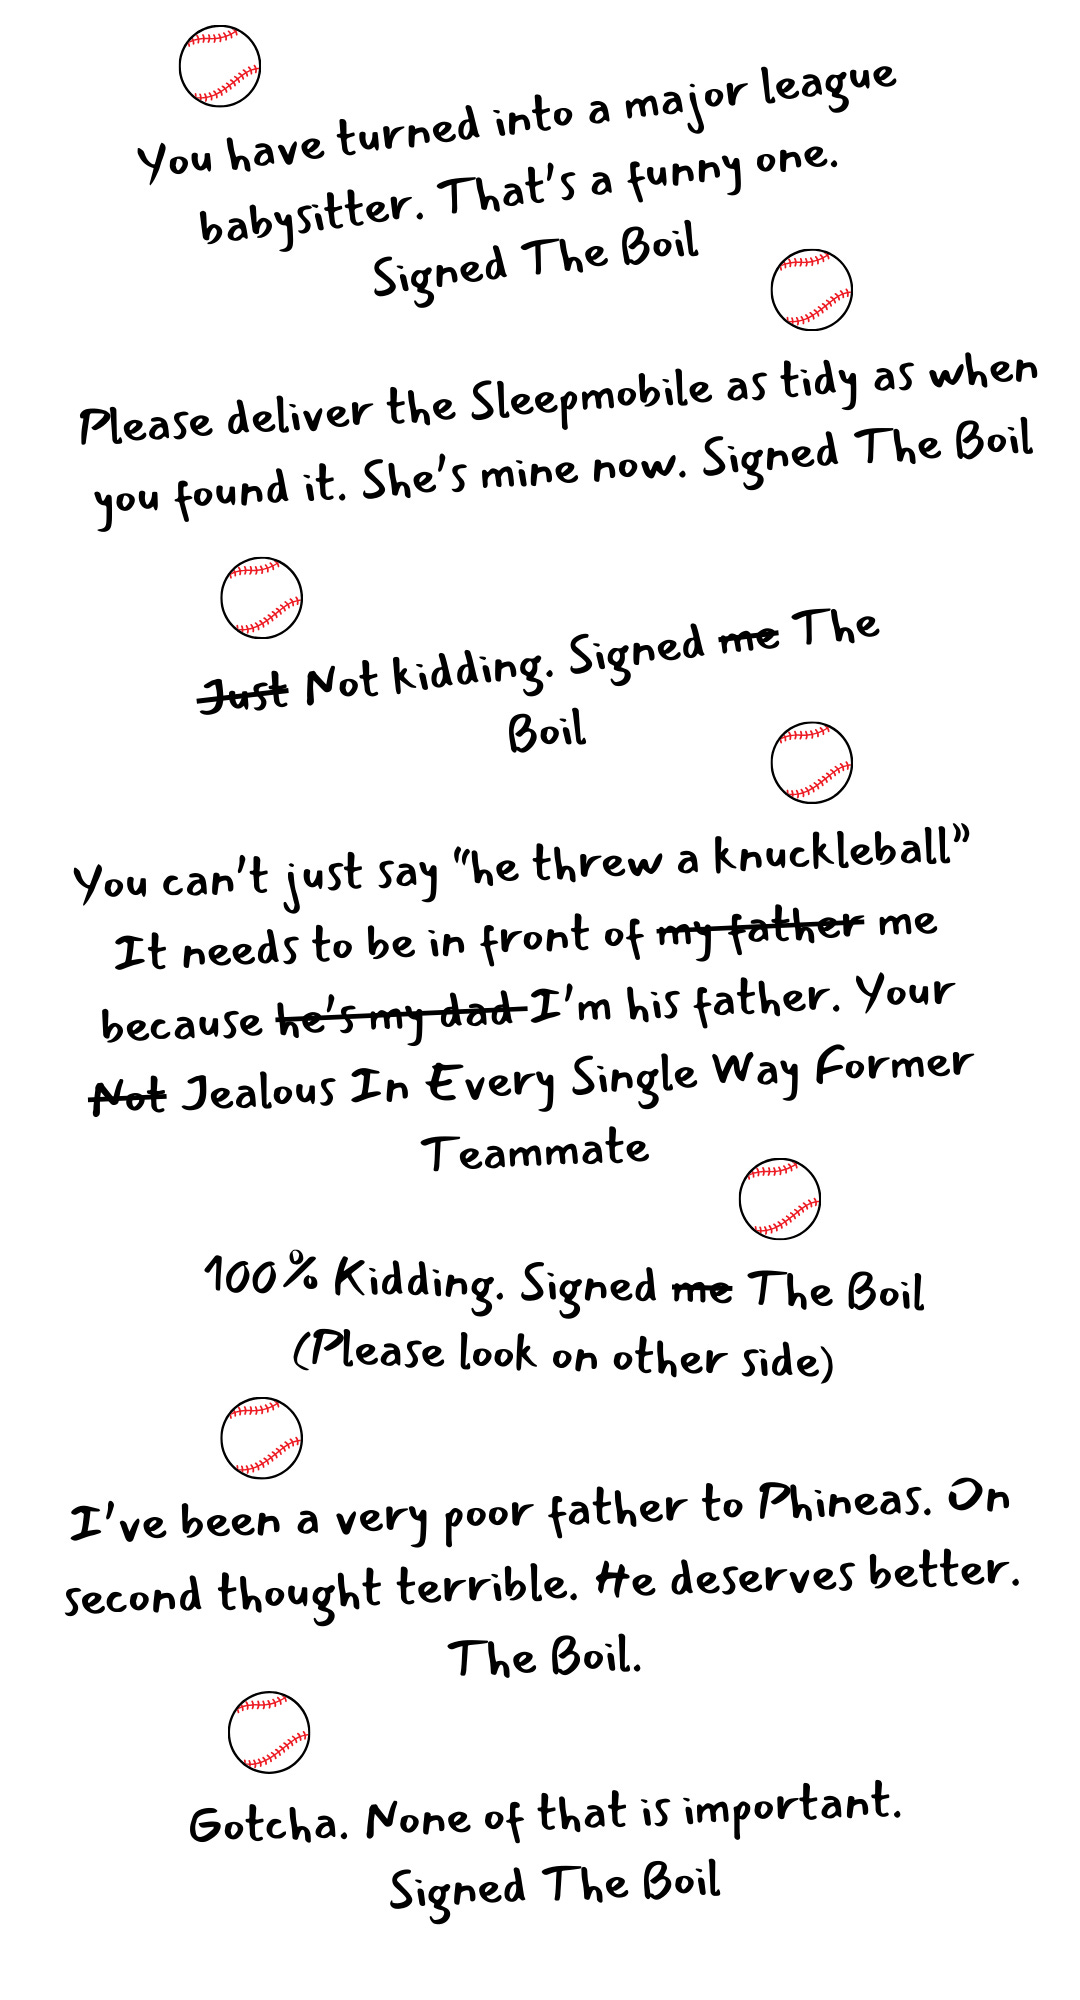 You have turned into a major league
babysitter. That's a funny one.
Signed The Boil
Please deliver the Sleepmobile as tidy as when
you found it. She's mine now. Signed The Boil
Just Not kidding. Signed me The
Boil
You can't just say "he threw a knuckleball"
It needs to be in front of my father me
because he's my dad I'm his father. Your
Not Jealous In Every Single Way Former
Teammate
100% Kidding. Signed me The Boil
(Please look on other side)
I've been a very poor father to Phineas. On
second thought terrible. He deserves better.
The Boil.
Gotcha. None of that is important.
Signed The Boil